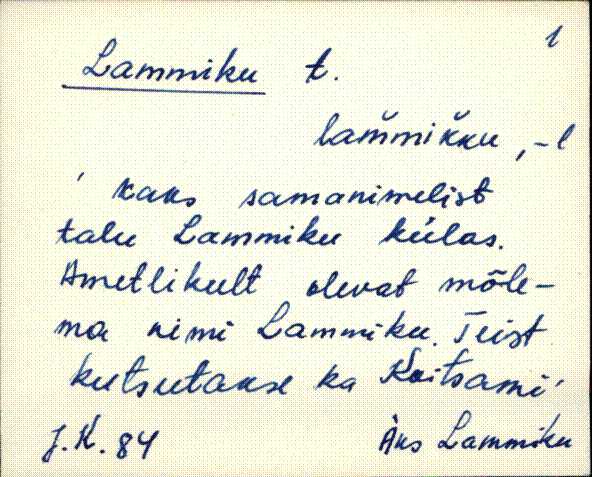 1
Lammiku t.
lam̆mik̆ku, -l
' kaks samanimelist
talu Lammiku külas.
Ametlikult olevat mõle-
ma nimi Lammiku. Teist
kutsutakse ka Koitsami'
J.K. 84 Äks Lammiku